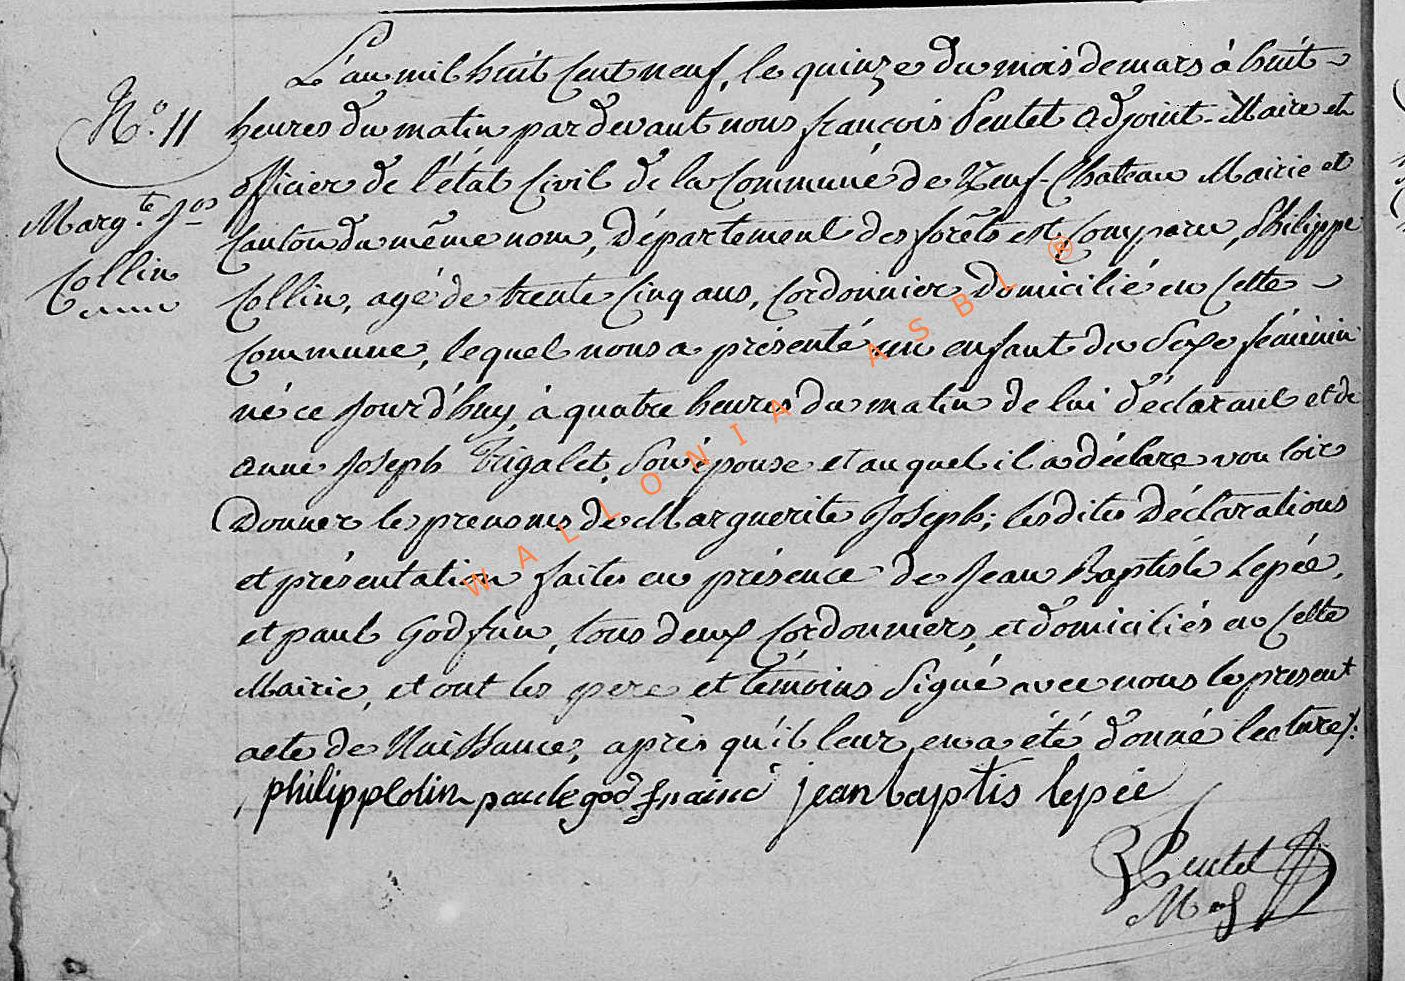 N.º 11
Marg.te Jos
Collin
L'an mil huit cent neuf, le quinze du mois de mars à huit
heures du matin par devant nous françois Pentet adjoint-Maire et
officier de l'état Civil de la Commune de Neuf-Chateau Mairie et
Canton du même nom, Département des forêts est Comparu, Philippe
Collin, agé de trente Cinq ans, Cordonnier Domicilié en Cette
Commune, lequel nous a présenté un enfant du Sexe féminin
né ce Jourd'huy, à quatre heures du matin de lui déclarant et de
anne Joseph Trigalet, Son épouse et auquel il a déclare vouloir
Donner les prenoms de Marguerite Joseph; lesdites Déclarations
et présentation faites en présence de Jean Baptiste Lepée,
et paul Godfrin, tous deux Cordonniers, et domiciliés en Cette
Mairie, et ont les pere et témoins Signé avec nous le present
acte de Naissance, après qu'il leur en a été donné lecture
philipp Colin paule god jean baptis lepée
Pentet
WALLONIA ASBL ®